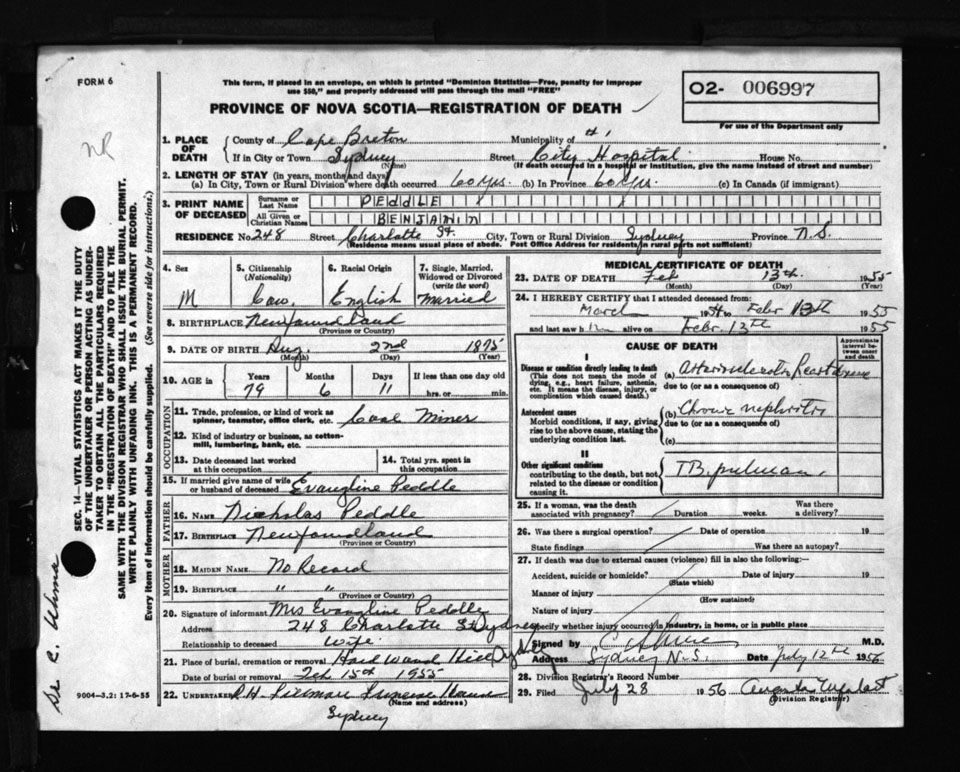 FORM 6
This form, if placed in an envelope, on which is printed "Dominion Statistics—Free, penalty for improper
use $50," and properly addressed will pass through the mail "FREE"
PROVINCE OF NOVA SCOTIA—REGISTRATION OF DEATH
O2- 006997
For use of the Department only
NR
SEC. 14—VITAL STATISTICS ACT MAKES IT THE DUTY
OF THE UNDERTAKER OR PERSON ACTING AS UNDER-
TAKER TO OBTAIN ALL THE PARTICULARS REQUIRED
IN THE "REGISTRATION OF DEATH" AND TO FILE THE
SAME WITH THE DIVISION REGISTRAR WHO SHALL ISSUE THE BURIAL PERMIT.
WRITE PLAINLY WITH UNFADING INK. THIS IS A PERMANENT RECORD.
Every item of information should be carefully supplied. (See reverse side for instructions).
1. PLACE OF DEATH
County of Cape Breton Municipality of #1
If in City or Town Sydney Street City Hospital House No.
(Name) (If death occurred in a hospital or institution, give the name instead of street and number)
2. LENGTH OF STAY (in years, months and days)
(a) In City, Town or Rural Division where death occurred 60 yrs. (b) In Province 60 yrs. (c) In Canada (if immigrant)
3. PRINT NAME OF DECEASED
Surname or Last Name PEDDLE
All Given or Christian Names BENJAMIN
RESIDENCE No. 248 Street Charlotte St. City, Town or Rural Division Sydney Province N.S.
(Residence means usual place of abode. Post Office Address for residents in rural parts not sufficient)
4. Sex M
5. Citizenship (Nationality) Can.
6. Racial Origin English
7. Single, Married, Widowed or Divorced (write the word) Married
8. BIRTHPLACE Newfoundland
(Province or Country)
9. DATE OF BIRTH Aug. 2nd 1875
(Month) (Day) (Year)
10. AGE in Years 79 Months 6 Days 11 If less than one day old hrs. or min.
OCCUPATION
11. Trade, profession, or kind of work as spinner, teamster, office clerk, etc. Coal Miner
12. Kind of industry or business, as cotton-mill, lumbering, bank, etc.
13. Date deceased last worked at this occupation
14. Total yrs. spent in this occupation
15. If married give name of wife or husband of deceased Evangline Peddle
FATHER
16. NAME Nicholas Peddle
17. BIRTHPLACE Newfoundland
(Province or Country)
MOTHER
18. MAIDEN NAME No Record
19. BIRTHPLACE " "
(Province or Country)
20. Signature of informant Mrs Evangline Peddle
Address 248 Charlotte St Sydney
Relationship to deceased Wife
21. Place of burial, cremation or removal Hardwood Hill Sydney
Date of burial or removal Feb 15th 1955
22. UNDERTAKER
(Name and address)
Sydney
9004-3.2: 17-6-55
MEDICAL CERTIFICATE OF DEATH
23. DATE OF DEATH Feb 13th. 1955
(Month) (Day) (Year)
24. I HEREBY CERTIFY that I attended deceased from:
March 1954 to Febr 13th 1955
and last saw him alive on Febr. 12th 1955
CAUSE OF DEATH
Approximate interval between onset and death
I
Disease or condition directly leading to death
(This does not mean the mode of dying, e.g., heart failure, asthenia, etc. It means the disease, injury, or complication which caused death.)
(a) Arteriosclerotic heart disease
due to (or as a consequence of)
Antecedent causes
Morbid conditions, if any, giving rise to the above cause, stating the underlying condition last.
(b) Chronic nephritis
due to (or as a consequence of)
(c)
II
Other significant conditions
contributing to the death, but not related to the disease or condition causing it.
TB. pulmon.
25. If a woman, was the death associated with pregnancy? Duration weeks. Was there a delivery?
26. Was there a surgical operation? Date of operation 19
State findings Was there an autopsy?
27. If death was due to external causes (violence) fill in also the following:
Accident, suicide or homicide? Date of injury 19
(State which)
Manner of injury
(How sustained)
Nature of injury
Specify whether injury occurred in industry, in home, or in public place
Signed by M.D.
Address Sydney N.S. Date July 12th 1956
28. Division Registrar's Record Number
29. Filed July 28 1956
(Division Registrar)